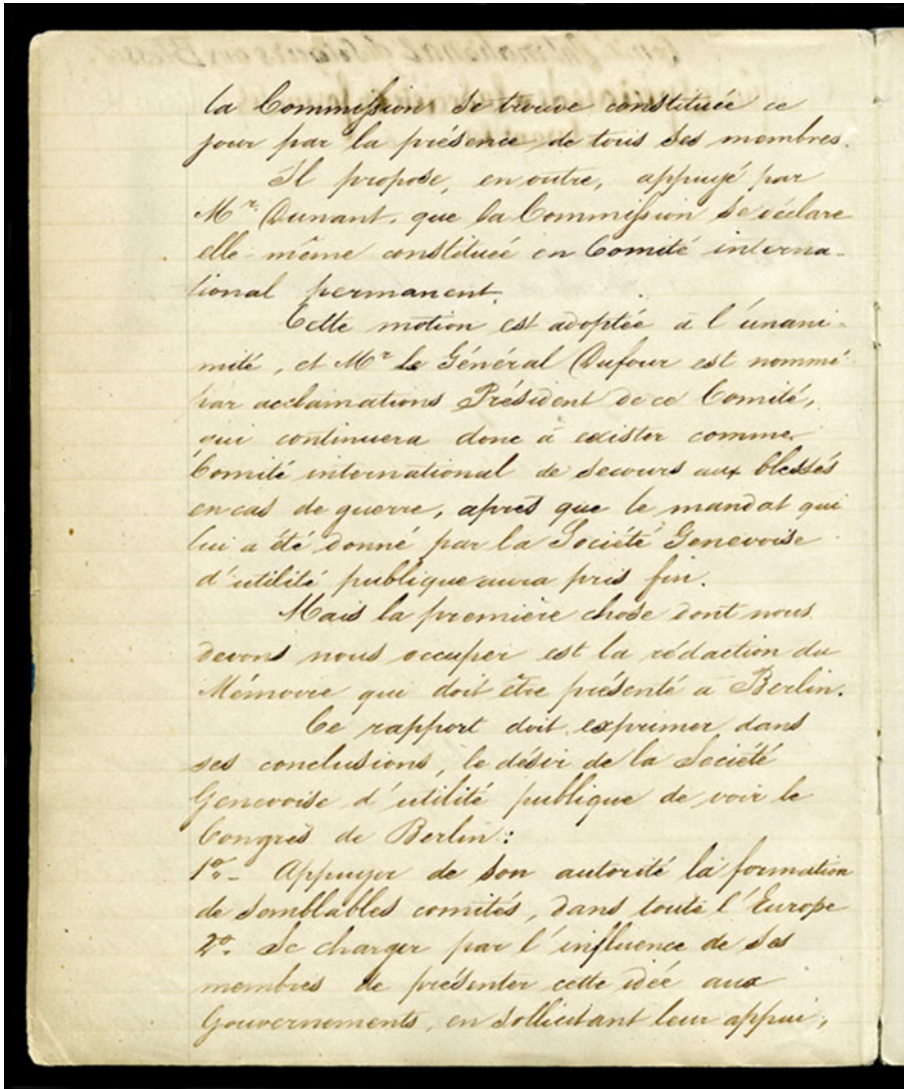 la Commission se trouve constituée ce
jour par la présence de tous ses membres.
Il propose, en outre, appuyé par
Mr. Dunant, que la Commission se déclare
elle-même constituée en Comité interna-
tional permanent.
Cette motion est adoptée à l'unani-
mité, et Mr le Général Dufour est nommé
par acclamations Président de ce Comité,
qui continuera donc à exister comme
Comité international de secours aux blessés
en cas de guerre, après que le mandat qui
lui a été donné par la Société Genevoise
d'utilité publique aura pris fin.
Mais la première chose dont nous
devons nous occuper est la rédaction du
Mémoire qui doit être présenté à Berlin.
Ce rapport doit exprimer dans
ses conclusions, le désir de la Société
Genevoise d'utilité publique de voir le
Congrès de Berlin :
1o- Appuyer de son autorité la formation
de semblables comités, dans toute l'Europe
2o. Se charger par l'influence de ses
membres de présenter cette idée aux
Gouvernements, en sollicitant leur appui,